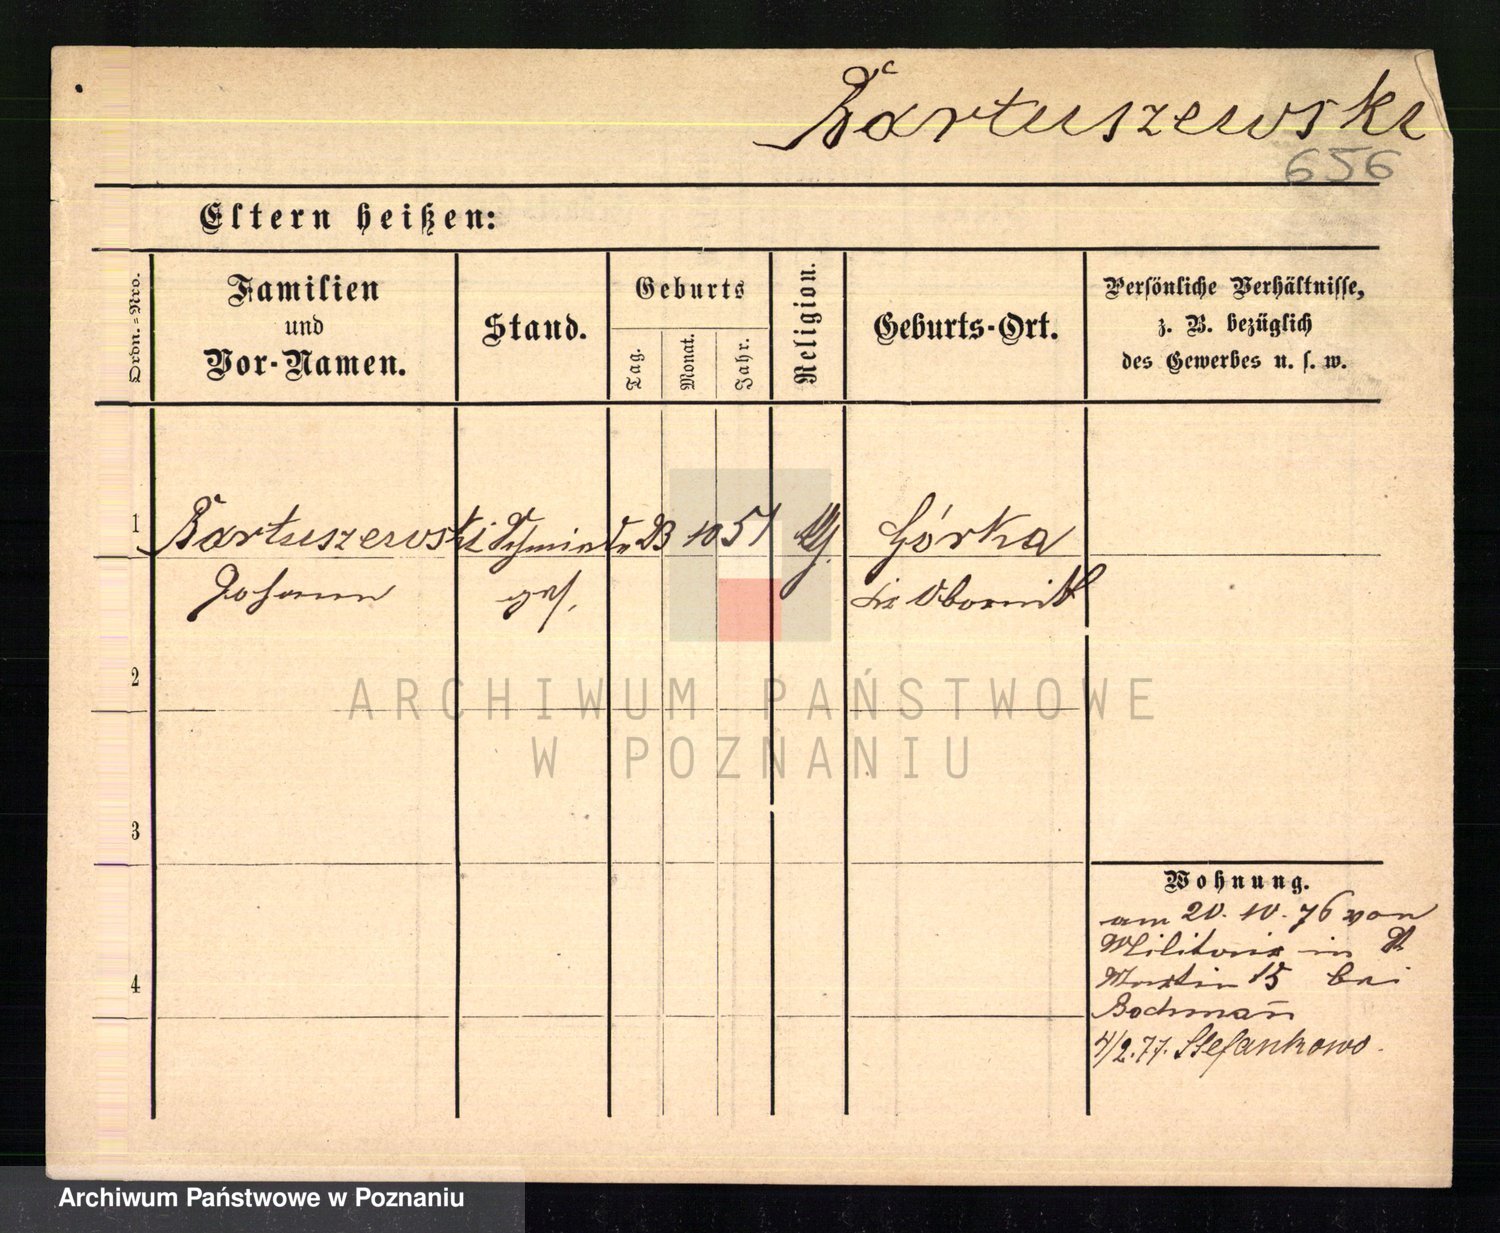 Bartuszewski
656
Eltern heißen:
Ordn.-Nro.
Familien
und
Vor-Namen.
Stand.
Geburts
Tag.
Monat.
Jahr.
Religion.
Geburts-Ort.
Persönliche Verhältnisse,
z. B. bezüglich
des Gewerbes u. s. w.
1 Bartuszewski 10 51 Górka
Johann ges. Obornik
2
ARCHIWUM PAŃSTWOWE
W POZNANIU
3
Wohnung.
am 20. 10. 76 von
Militair in St
4 Martin 15 bei
Bochmann
4/2.77. Stefankowo.
Archiwum Państwowe w Poznaniu